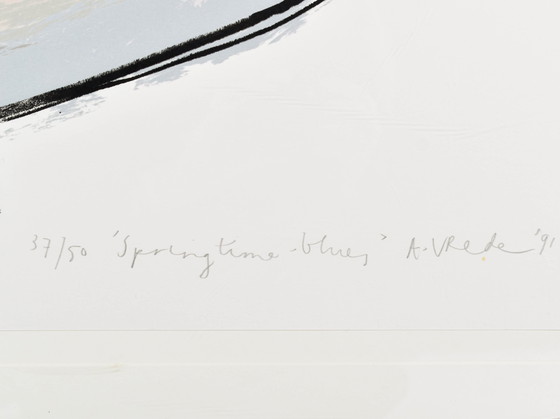 37/50 'Springtime-blues' A.VRede '91